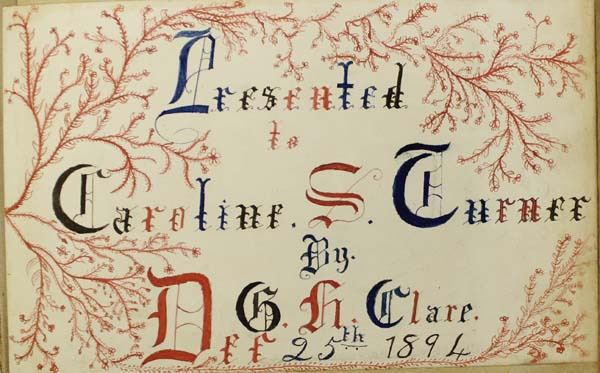 Presented
to
Caroline. S. Turner
By.
G. H. Clare.
Dec 25th 1894